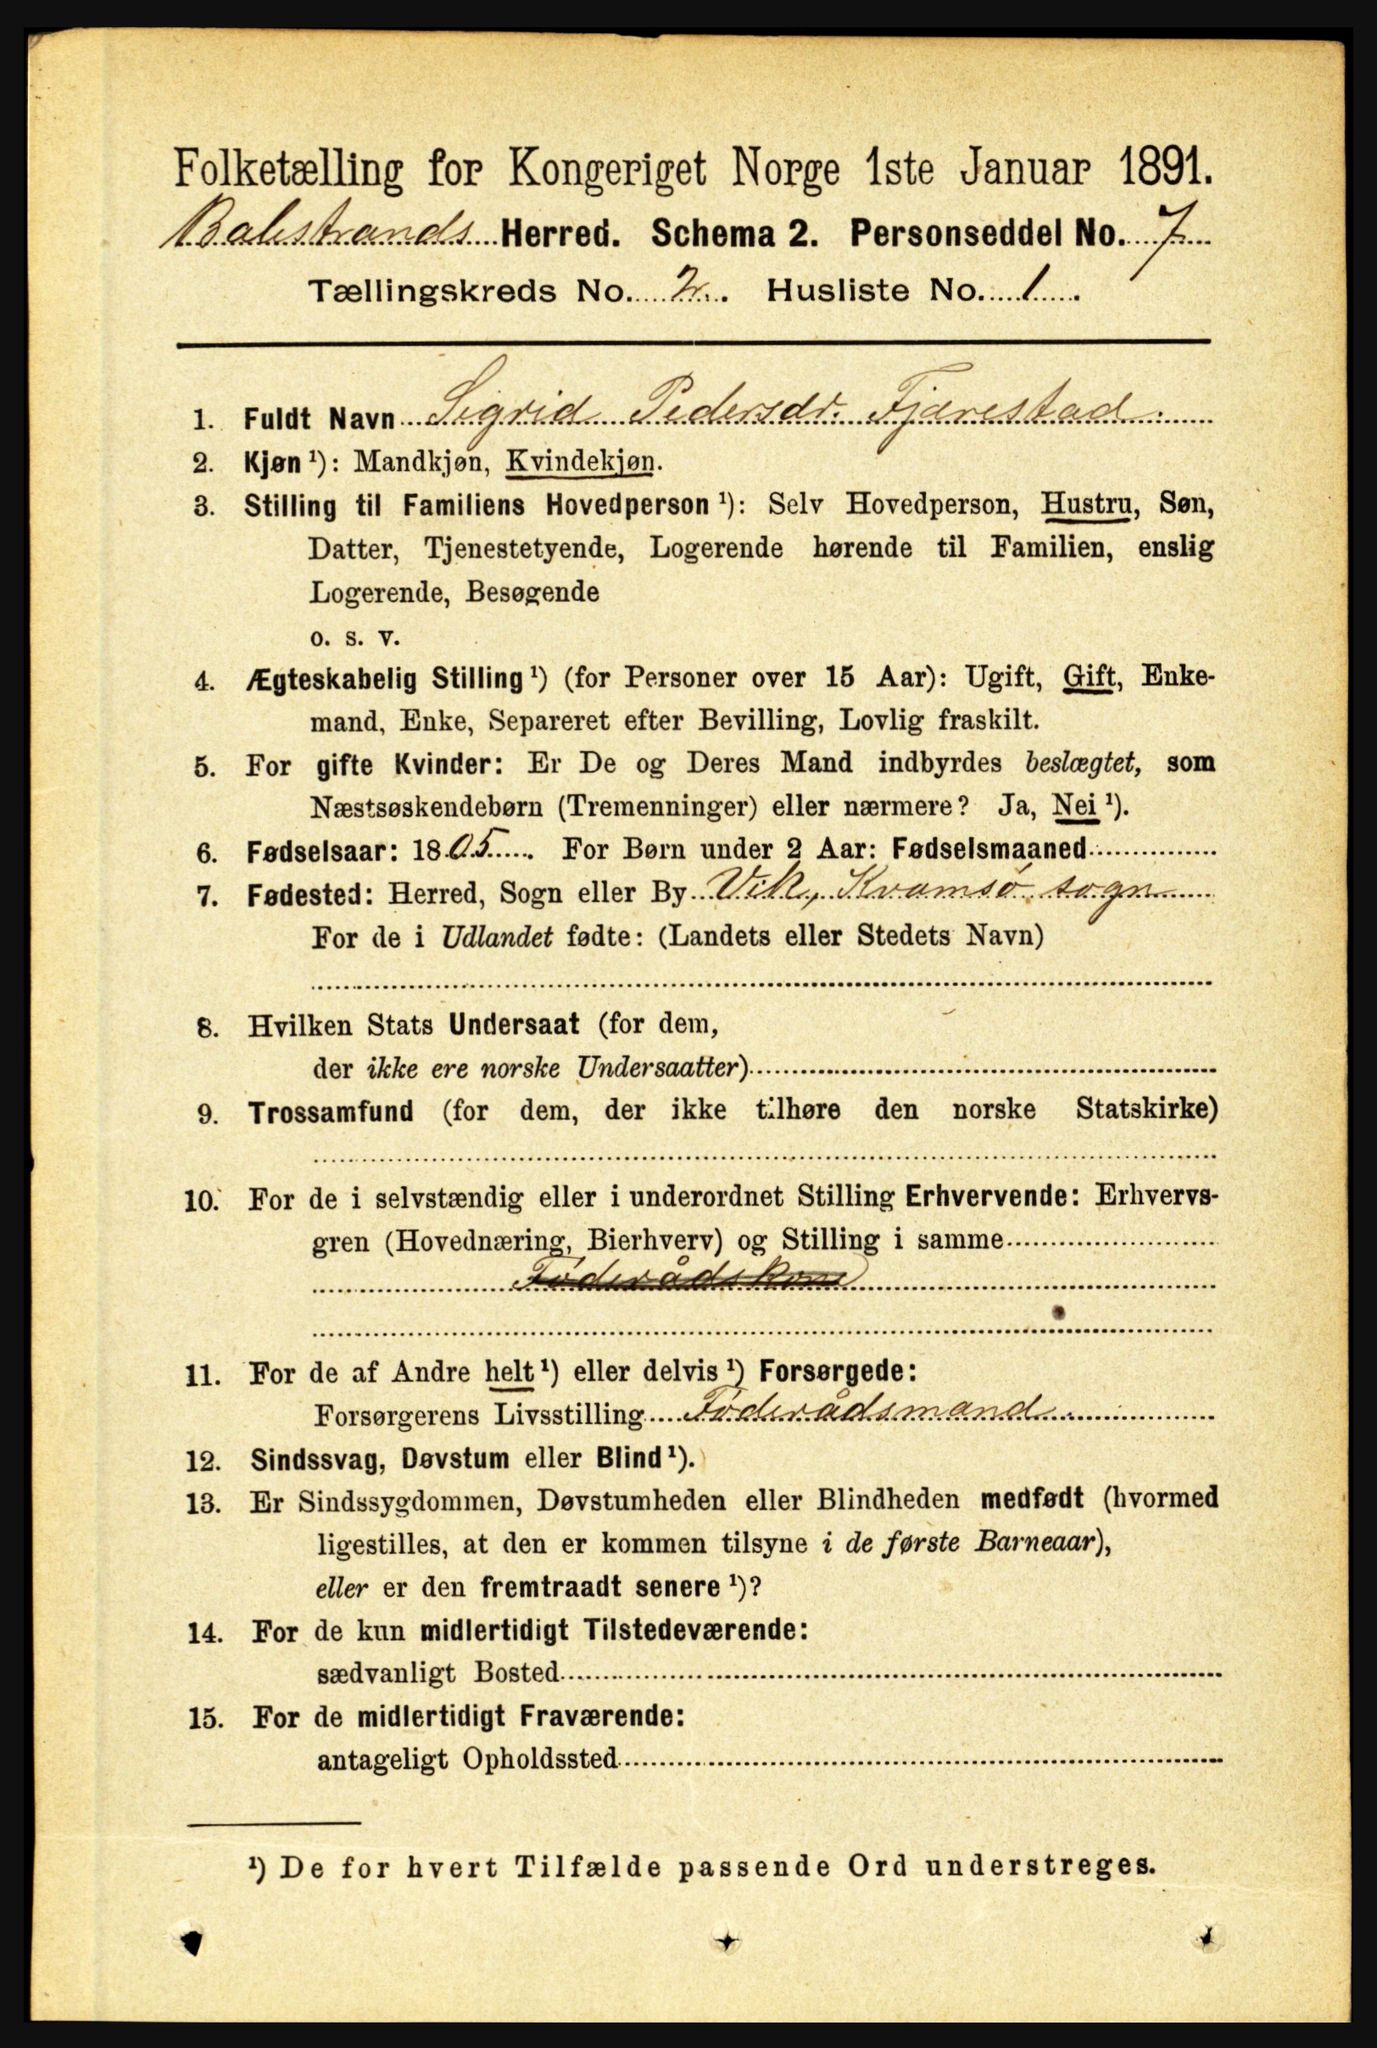 Folketælling for Kongeriget Norge 1ste Januar 1891.
Balestrands Herred. Schema 2. Personseddel No. 7
Tællingskreds No. 2. Husliste No. 1.
1. Fuldt Navn Sigrid Pedersdr. Fjærestad.
2. Kjøn ¹): Mandkjøn, Kvindekjøn.
3. Stilling til Familiens Hovedperson ¹): Selv Hovedperson, Hustru, Søn,
Datter, Tjenestetyende, Logerende hørende til Familien, enslig
Logerende, Besøgende
o. s. v.
4. Ægteskabelig Stilling ¹) (for Personer over 15 Aar): Ugift, Gift, Enke-
mand, Enke, Separeret efter Bevilling, Lovlig fraskilt.
5. For gifte Kvinder: Er De og Deres Mand indbyrdes beslægtet, som
Næstsøskendebørn (Tremenninger) eller nærmere? Ja, Nei ¹).
6. Fødselsaar: 1805. For Børn under 2 Aar: Fødselsmaaned
7. Fødested: Herred, Sogn eller By Vik, Kvamsø sogn
For de i Udlandet fødte: (Landets eller Stedets Navn)
8. Hvilken Stats Undersaat (for dem,
der ikke ere norske Undersaatter)
9. Trossamfund (for dem, der ikke tilhøre den norske Statskirke)
10. For de i selvstændig eller i underordnet Stilling Erhvervende: Erhvervs-
gren (Hovednæring, Bierhverv) og Stilling i samme
Føderådskone
11. For de af Andre helt ¹) eller delvis ¹) Forsørgede:
Forsørgerens Livsstilling Føderådsmand.
12. Sindssvag, Døvstum eller Blind ¹).
13. Er Sindssygdommen, Døvstumheden eller Blindheden medfødt (hvormed
ligestilles, at den er kommen tilsyne i de første Barneaar),
eller er den fremtraadt senere ¹)?
14. For de kun midlertidigt Tilstedeværende:
sædvanligt Bosted
15. For de midlertidigt Fraværende:
antageligt Opholdssted
¹) De for hvert Tilfælde passende Ord understreges.